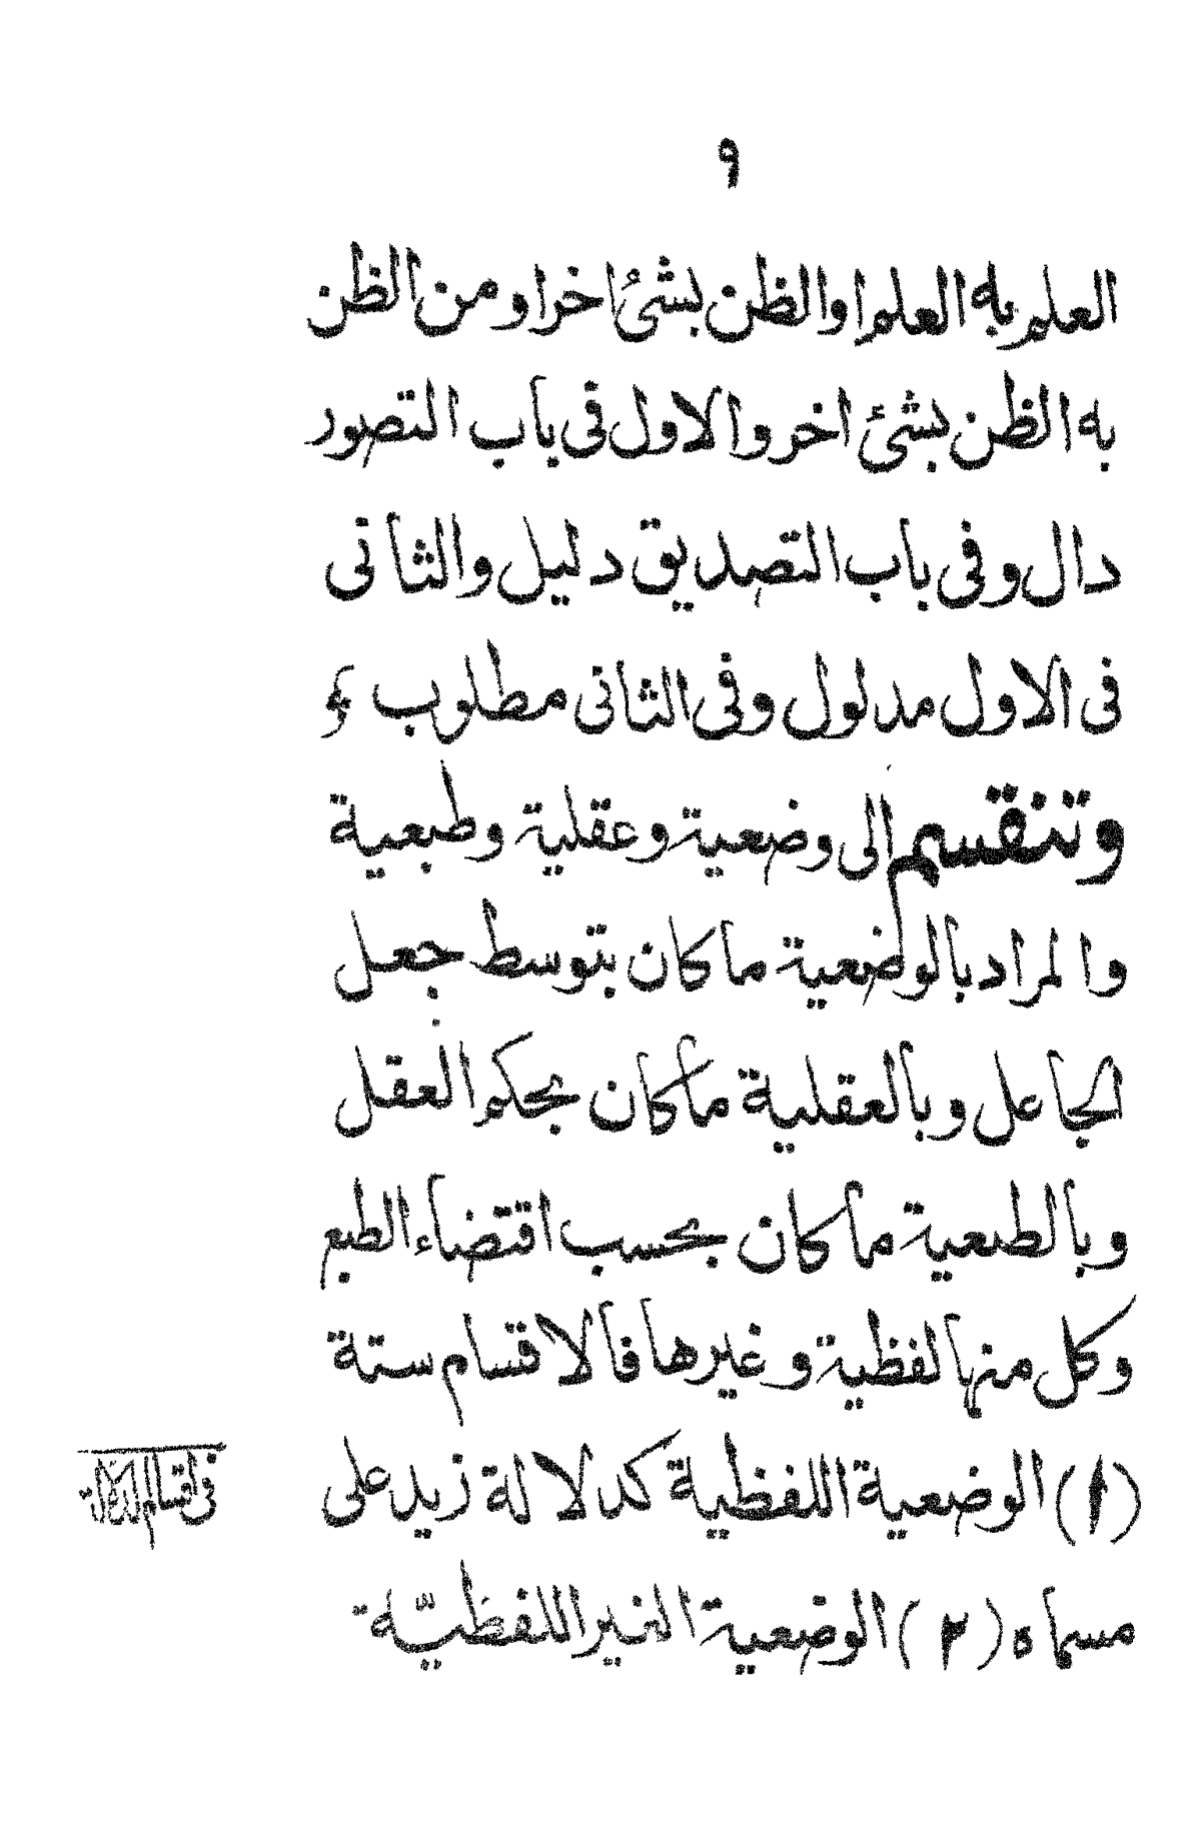 ٩
العلم به العلم او الظن بشئ اخر او من الظن
به الظن بشئ اخر والاول فى باب التصور
دال وفى باب التصديق دليل والثانى
فى الاول مدلول وفى الثانى مطلوب ﴾
وتنقسم الى وضعية وعقلية وطبعية
والمراد بالوضعية ما كان بتوسط جعل
الجاعل وبالعقلية ما كان بحكم العقل
وبالطبعية ما كان بحسب اقتضاء الطبع
وكل منها لفظية وغيرها فالاقسام ستة
(١) الوضعية اللفظية كدلالة زيد على
فى اقسام الدلالة
مسماه (٢) الوضعية الغير اللفظيّة